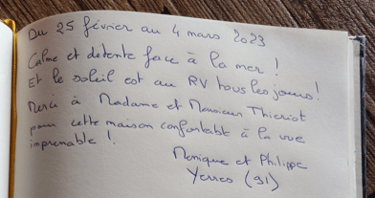 Du 25 février au 4 mars 2023
Calme et détente face à la mer !
Et le soleil est au RV tous les jours !
Merci à Madame et Monsieur Thieriot
pour cette maison confortable à la vue
imprenable !
Monique et Philippe
Yerres (91)